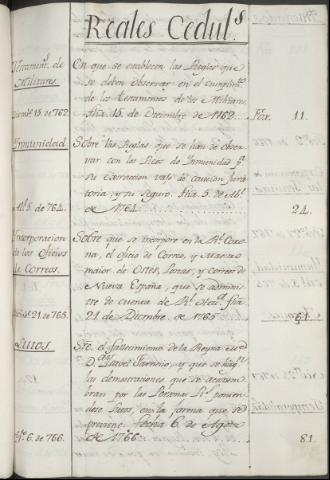 Reales Cedul.s
Testament.s de
Militares.
En que se establecen las Reglas que
se deben observar en el cumplim.to
de los Testamentos de los Militares
fha 15. de Diciembre de 1762.
15. de 762.
Fox. 11.
Inmunidad.
Sobre las Reglas que se han de obser
var con los Reos de Inmunidad p.a
su extraccion vajo de caucion jura
toria, y su seguro. fha 5. de
de 1764.
5. de 764.
24.
Incorporacion
de los Oficios
de Correos.
Sobre que se incorpore en la R.l Coro
na, el oficio de Correo, y Marzo
maior de Ostes, Postas, y Correos de
Nueva España, que se adminis
tre de cuenta de R.l fha
21. de Diciembre. de 1765.
21. de 765.
61.
Lutos
Sre. el fallecimiento de la Reyna
D.a Isavel Farnesio, y que se hag.n
las demostraciones que se acostum
bran por las Personas R.s ponien
dose Lutos, en la forma que se
previene. fecha 6. de Agos.to
de 1766.
Ag.o 6. de 766.
81.